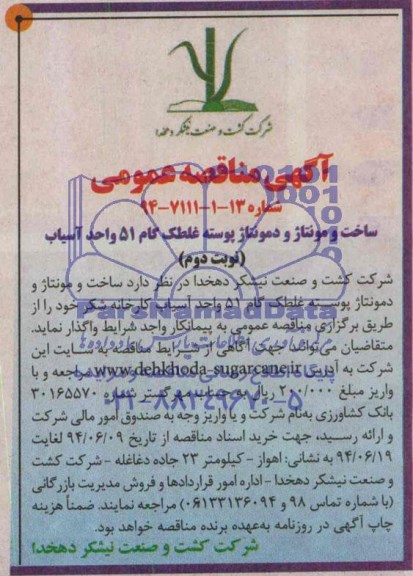 شرکت کشت و صنعت نیشکر دهخدا
آگهی مناقصه عمومی
شماره ۱۳-۱-۷۱۱۱-۹۴
ساخت و مونتاژ و دمونتاژ پوسته غلطک گام ۵۱ واحد آسیاب
(نوبت دوم)
شرکت کشت و صنعت نیشکر دهخدا در نظر دارد ساخت و مونتاژ و
دمونتاژ پوسته غلطک گام ۵۱ واحد آسیاب کارخانه شکر خود را از
طریق برگزاری مناقصه عمومی به پیمانکار واجد شرایط واگذار نماید.
متقاضیان می‌توانند جهت آگاهی از شرایط مناقصه به سایت این
شرکت به آدرس www.dehkhoda-sugarcane.ir مراجعه و با
واریز مبلغ ۲۰۰/۰۰۰ ریال به حساب مهرگستر شماره ۳۰۱۶۵۵۷۰
بانک کشاورزی به‌نام شرکت و یا واریز وجه به صندوق امور مالی شرکت
و ارائه رسید، جهت خرید اسناد مناقصه از تاریخ ۹۴/۰۶/۰۹ لغایت
۹۴/۰۶/۱۹ به نشانی: اهواز - کیلومتر ۲۳ جاده دغاغله - شرکت کشت
و صنعت نیشکر دهخدا - اداره امور قراردادها و فروش مدیریت بازرگانی
(با شماره تماس ۹۸ و ۰۶۱۳۳۱۳۶۰۹۴) مراجعه نمایند. ضمناً هزینه
چاپ آگهی در روزنامه به‌عهده برنده مناقصه خواهد بود.
شرکت کشت و صنعت نیشکر دهخدا
ParsNamadData
۰۲۱-۸۸۳۴۹۶۷۰-۵